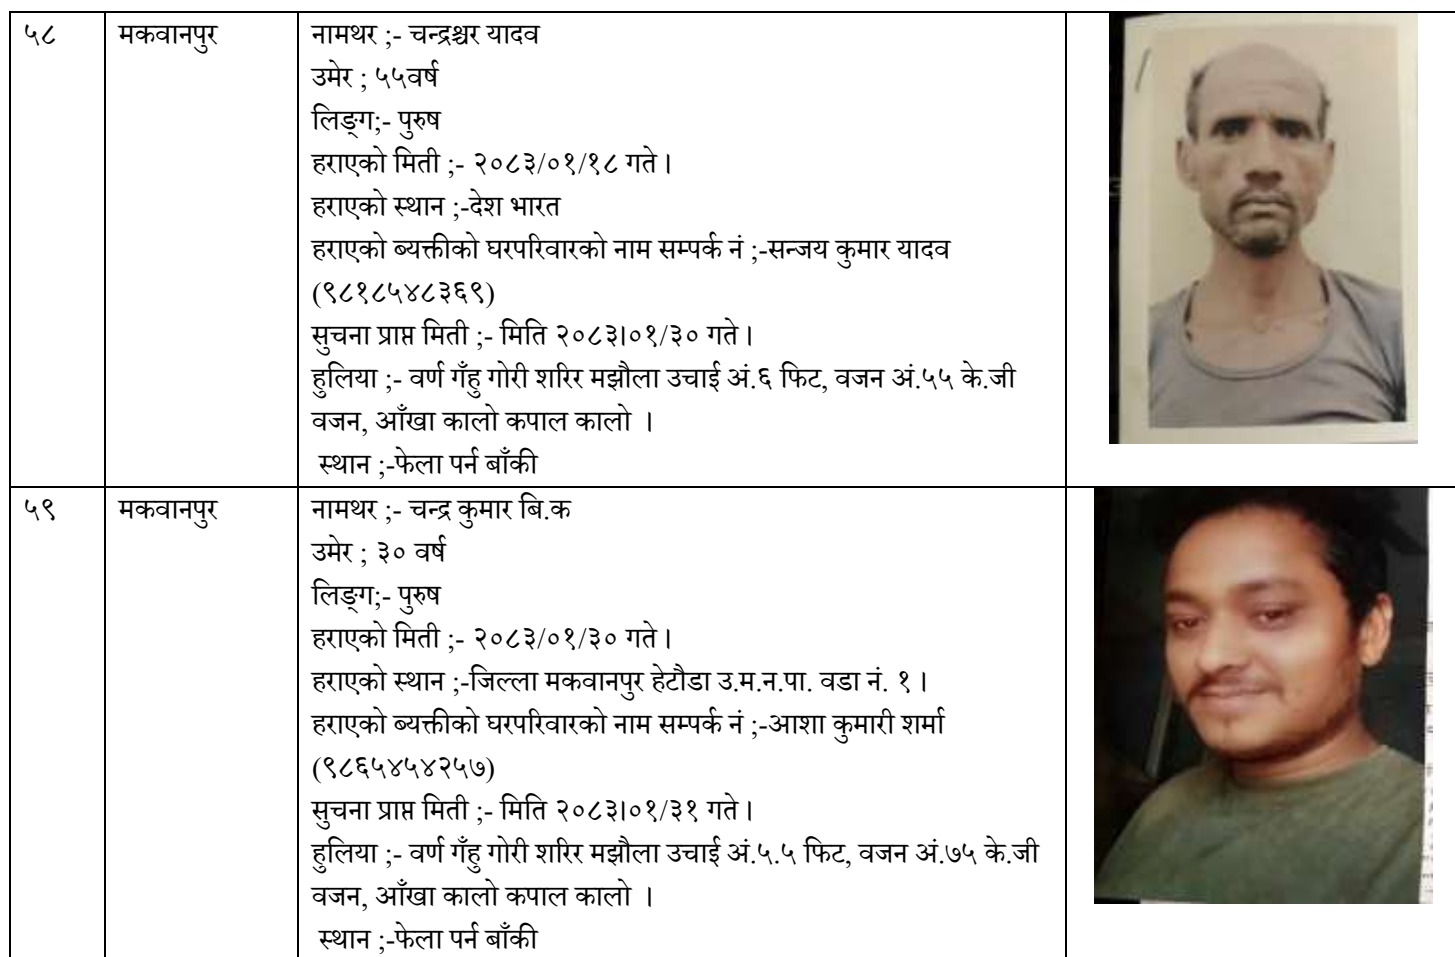 ५८
मकवानपुर
नामथर ;- चन्द्रश्चर यादव
उमेर ; ५५वर्ष
लिङ्ग;- पुरुष
हराएको मिती ;- २०८३/०१/१८ गते।
हराएको स्थान ;-देश भारत
हराएको ब्यक्तीको घरपरिवारको नाम सम्पर्क नं ;-सन्जय कुमार यादव
(९८१८५४८३६९)
सुचना प्राप्त मिती ;- मिति २०८३।०१/३० गते।
हुलिया ;- वर्ण गँहु गोरी शरिर मझौला उचाई अं.६ फिट, वजन अं.५५ के.जी
वजन, आँखा कालो कपाल कालो ।
स्थान ;-फेला पर्न बाँकी
५९
मकवानपुर
नामथर ;- चन्द्र कुमार बि.क
उमेर ; ३० वर्ष
लिङ्ग;- पुरुष
हराएको मिती ;- २०८३/०१/३० गते।
हराएको स्थान ;-जिल्ला मकवानपुर हेटौडा उ.म.न.पा. वडा नं. १।
हराएको ब्यक्तीको घरपरिवारको नाम सम्पर्क नं ;-आशा कुमारी शर्मा
(९८६५४५४२५७)
सुचना प्राप्त मिती ;- मिति २०८३।०१/३१ गते।
हुलिया ;- वर्ण गँहु गोरी शरिर मझौला उचाई अं.५.५ फिट, वजन अं.७५ के.जी
वजन, आँखा कालो कपाल कालो ।
स्थान ;-फेला पर्न बाँकी